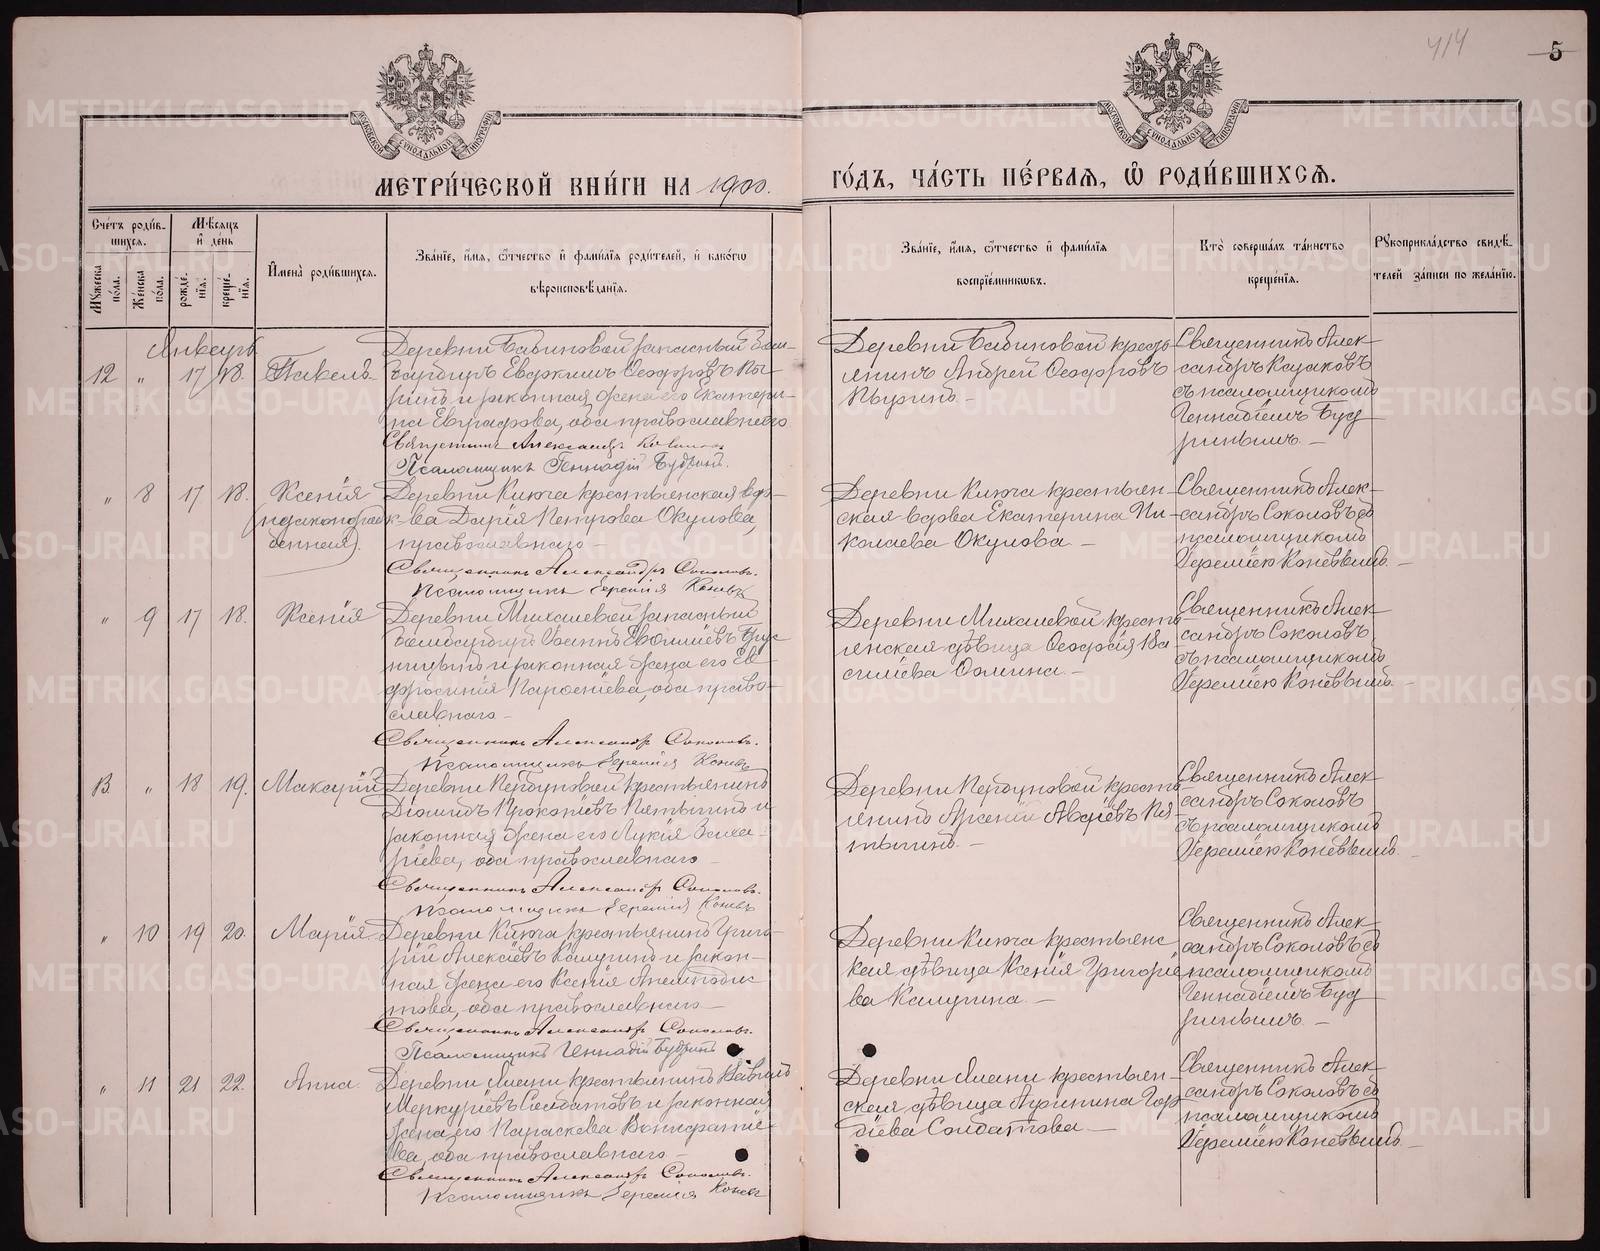 414
5
МОСКОВСКОЙ СѴНОДАЛЬНОЙ ТИПОГРАФІИ
МОСКОВСКОЙ СѴНОДАЛЬНОЙ ТИПОГРАФІИ
МЕТРИ́ЧЕСКОЙ КНИ́ГИ НА 1900.
ГО́ДЪ, ЧА́СТЬ ПЕ́РВАѦ, Ѡ҆ РОДИ́ВШИХСѦ.
Сче́тъ роди́в-
шихсѧ.
Мꙋ́жеска по́ла.
Же́нска по́ла.
Мѣ́сѧцъ
и҆ де́нь
рожде́-
нїѧ.
креще́-
нїѧ.
И҆мена̀ роди́вшихсѧ.
Зва́нїе, и҆́мѧ, ѻ҆́тчество и҆ фами́лїѧ роди́телей, и҆ како́гѡ
вѣроисповѣ́данїѧ.
Зва́нїе, и҆́мѧ, ѻ҆́тчество и҆ фами́лїѧ
воспрїе́мникѡвъ.
Кто̀ соверша́лъ та́инство
креще́нїѧ.
Рꙋкоприкла́дство свидѣ́-
телей за́писи по жела́нїю.
Январь
12 " 17 18. Павелъ
Деревни Бабиновой запасный бом-
бардиръ Евдокимъ Ѳеодоровъ Пы-
жинъ и законная жена его Екатери-
на Евграфова, оба православнаго
Священникъ Александръ
Псаломщикъ Геннадій Будринъ.
Деревни Бабиновой кресть-
янинъ Андрей Ѳеодоровъ
Священникъ Алек-
сандръ
съ псаломщикомъ
Геннадіемъ Буд
ринымъ. —
" 8 17 18. Ксенія
(незаконорож-
денная).
Деревни Ключа крестьянская вдо-
ва Дарія Петрова Окулова,
православнаго —
Священникъ Александръ Соколовъ.
Псаломщикъ Іеремія Коневъ
Деревни Ключа крестьян-
ская вдова Екатерина Ни-
колаева Окулова —
Священникъ Алек-
сандръ Соколовъ съ
псаломщикомъ
Іереміею Коневымъ. —
" 9 17 18. Ксенія
Деревни Михалевой запасный
законная жена его Ев-
фросинія Парѳеніева, оба право-
славнаго —
Священникъ Александръ Соколовъ.
Псаломщикъ Іеремія Коневъ
Деревни Михалевой кресть-
янская дѣвица Ѳеодосія Ва-
силіева Ѳомина —
Священникъ Алек-
сандръ Соколовъ
съ псаломщикомъ
Іереміею Коневымъ. —
13. " 18 19. Макарій
крестьянинъ
Діомидъ Прокопіевъ Пятыгинъ и
законная жена его Лукія Заха-
ріева, оба православнаго —
Священникъ Александръ Соколовъ.
Псаломщикъ Іеремія Коневъ
кресть-
янинъ Арсеній
Священникъ Алек-
сандръ Соколовъ
съ псаломщикомъ
Іереміею Коневымъ. —
" 10 19 20. Марія
Деревни Ключа крестьянинъ Григо-
рій Алексіевъ Калугинъ и закон-
ная жена его Ксенія Анемподис
това, оба православнаго —
Священникъ Александръ Соколовъ.
Псаломщикъ Геннадій Будринъ
Деревни Ключа крестьянс
кая дѣвица Ксенія Григоріе
ва Калугина —
Священникъ Алек-
сандръ Соколовъ съ
псаломщикомъ
Геннадіемъ Буд
ринымъ. —
" 11 21 22. Анна.
Деревни крестьянинъ
Меркуріевъ Солдатовъ и законная
жена его Параскева Вонифатіе-
ва, оба православнаго —
Священникъ Александръ Соколовъ.
Псаломщикъ Іеремія Коневъ
Деревни крестьян-
ская дѣвица Агрипина Гор
діева Солдатова —
Священникъ Алек-
сандръ Соколовъ съ
псаломщикомъ
Іереміею Коневымъ —
METRIKI.GASO-URAL.RU